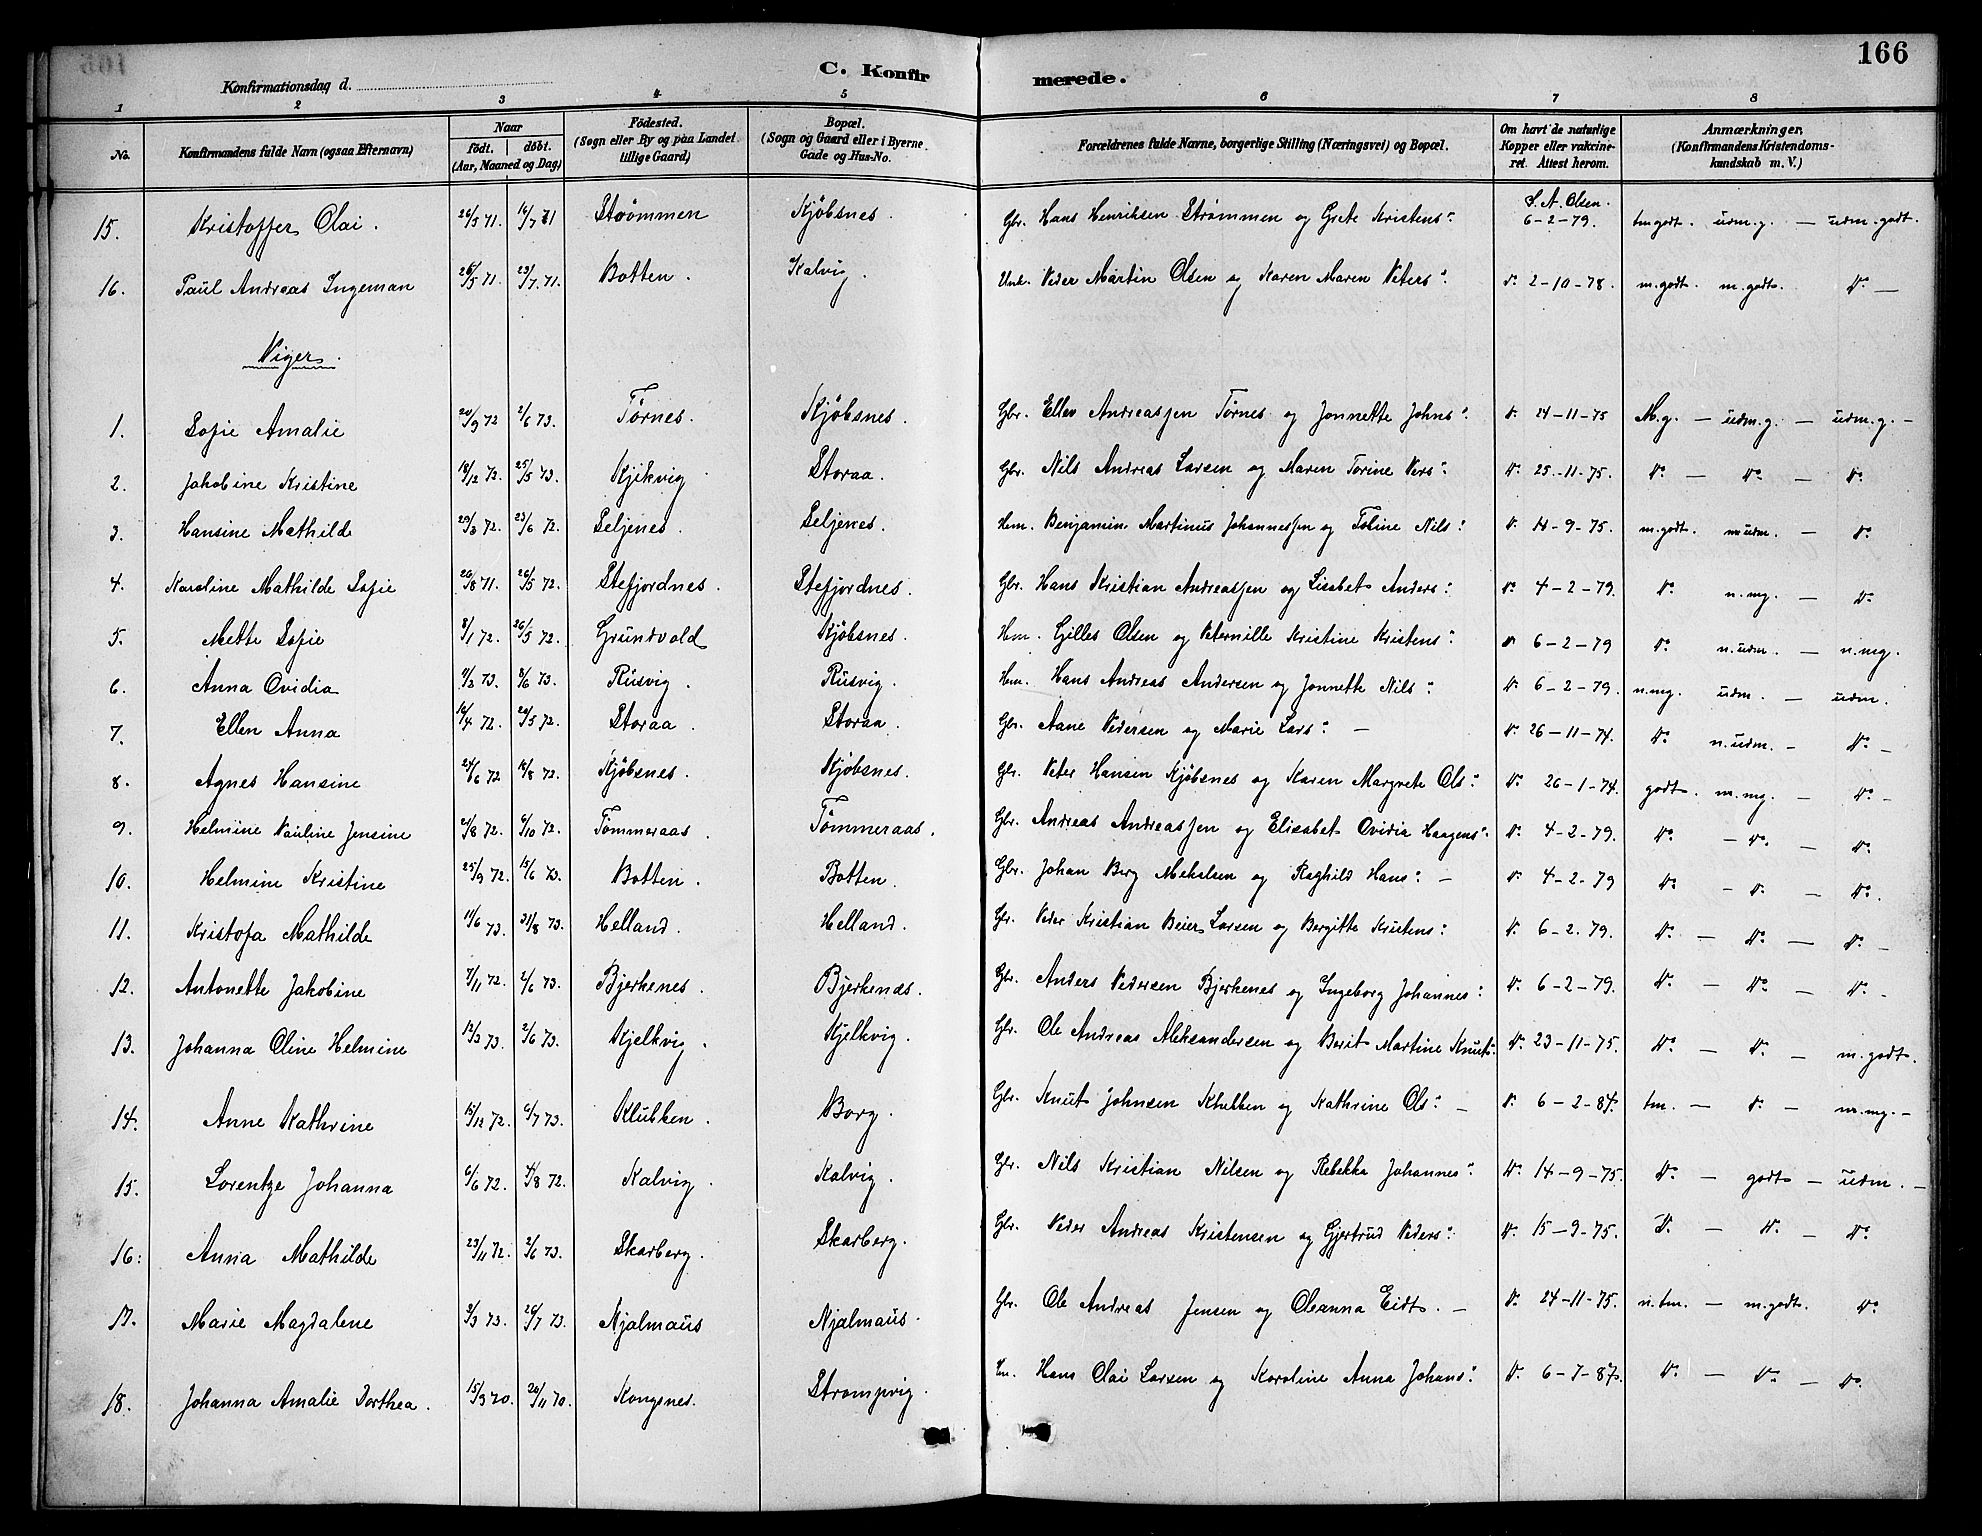 166
C. Konfirmerede.
Konfirmationsdag d.
1 2 3 4 5 6 7 8
No. Konfirmandens fulde Navn (ogsaa Efternavn) Naar födt. döbt. (Aar, Maaned og Dag) Födested. (Sogn eller By og paa Landet tillige Gaard) Bopæl. (Sogn og Gaard eller i Byerne Gade og Hus-No. Forældrenes fulde Navne, borgerlige Stilling (Næringsvei) og Bopæl. Om havt de naturlige Kopper eller vakcineret. Attest herom. Anmærkninger. (Konfirmandens Kristendomskundskab m. V.)
S. A. Olsen.
15. Kristoffer Olai. 26/5 71. 16/7 71 Strømmen Kjøbsnes. Gbr. Hans Henriksen Strømmen og Grete Kristens: 6-2-79. tm.godt. udm.g. — udm.godt.
16. Paul Andreas Ingeman 26/5 71. 23/7 71. Botten. Kalvig. Peder Martin Olsen og Karen Maren Peters: Do 2-10-78. m.godt. m.godt. Do —
Piger.
1. Sofie Amalie 20/9 72 2/6 73. Tørnes. Kjøbsnes. Gbr. Ellev Andreassen Tørnes og Jonnette Johns: Do 24-11-75 M.g. — udm.g. — udm.g. —
2. Jakobine Kristine 18/12 72. 25/5 73. Kjikvig Storaa. Gbr. Nils Andreas Larsen og Maren Torine Pers: Do 25-11-75. Do — Do — Do
3. Hansine Mathilde 29/3 72. 23/6 72. Seljenes. Seljenes. Hm. Benjamin Martinus Johannessen og Toline Nils: Do 11-9-75. m.godt. m.udm. — Do
4. Karoline Mathilde Sofie 20/8 71. 26/5 72. Stefjordnes. Stefjordnes. Gbr. Hans Kristian Andreassen og Lisabet Anders: Do 4-2-79. Do n.mg. — Do
5. Mette Sofie 8/1 72. 26/5 72. Grundvold Kjøbsnes. Hm. Gilles Olsen og Peternille Kristine Kristens: Do 6-2-79 Do n.udm. — n.mg.
6. Anna Ovidia 11/3 73. 8/6 73. Rusvig. Rusvig. Hm. Hans Andreas Andersen og Jonnette Nils: Do 6-2-79. n.mg. udm. — udm.
7. Ellen Anna 16/4 72. 20/5 72. Storaa. Storaa. Gbr. Aane Pedersen og Marie Lars: — Do 26-11-74. Do n.udm. — Do —
8. Agnes Hansine 24/6 72 18/8 72. Kjøbsnes. Kjøbsnes. Gbr. Peter Hansen Kjøbsnes og Karen Margrete Ols: Do 26-1-74. godt. m.mg. — Do —
9. Helmine Pauline Jensine 2/8 72. 6/10 72. Tømmeraas. Tømmeraas. Gbr. Andreas Andreassen og Elisabet Ovidia Haagens: Do 4-2-79. Do — Do — Do
10. Helmine Kristine 25/9 72. 15/6 73. Botten. Botten. Gbr. Johan Berg Mekelsen og Raghild Hans: — Do 4-2-79 Do — Do — Do
11. Kristofa Mathilde 11/6 73. 31/8 73. Helland. Helland. Gbr. Peder Kristian Beier Larsen og Bergitte Kristens: Do 6-2.79. Do — Do — Do —
12. Antonette Jakobine 7/11 72. 2/6 73. Bjerkenes. Bjerkenæs. Gbr. Anders Pedersen Bjerkenes og Ingeborg Johannes: Do 6-2-79. Do — Do — Do —
13. Johanna Oline Helmine 12/3 73. 2/6 73. Kjelkvig. Kjelkvig. Gbr. Ole Andreas Aleksandersen og Berit Martine Knuts: Do 23-11-75. Do — Do — m.godt.
14. Anne Kathrine 15/12 72. 6/7 73. Klubben. Borg. Gbr. Knut Johnsen Klubben og Kathrine Ols: — Do 6-2-84. tm. — Do — m.mg. —
15. Lorentze Johanna 6/6 72. 4/8 72. Kalvig. Kalvig. Gbr. Nils Kristian Nilsen og Rebekka Johannes: Do 14-9-75. Do — godt — udm. —
16. Anna Mathilde 23/11 72. 2/6 73. Skarberg. Skarberg. Gbr. Peder Andreas Kristensen og Gjertrud Peders: Do 15-9-75. Do — Do — Do
17. Marie Magdalene 3/3 73. 26/7 73. Njalmaus Njalmaus. Gbr. Ole Andreas Jensen og Oleanna Eidt. — Do 24-11-75. n.tm. — m.godt. Do
18. Johanna Amalie Dorthea. 15/9 70. 20/11 70. Kongsnes. Strømpvig. Hans Olai Larsen og Karoline Anna Johans: Do 6-7-87. Do — Do — Do